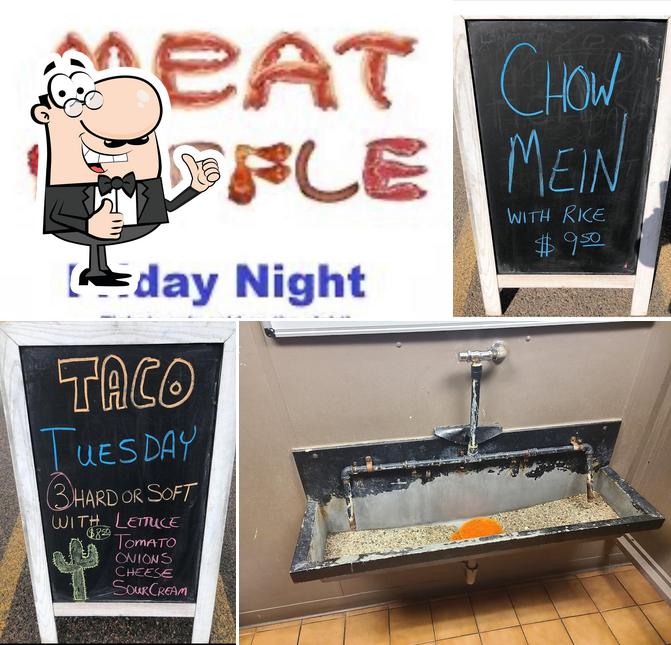 MEAT
Friday Night
CHOW
MEIN
WITH RICE
$ 9.50
TACO
TUESDAY
3 HARD OR SOFT
WITH $8.50 LETTUCE
TOMATO
ONIONS
CHEESE
SOUR CREAM